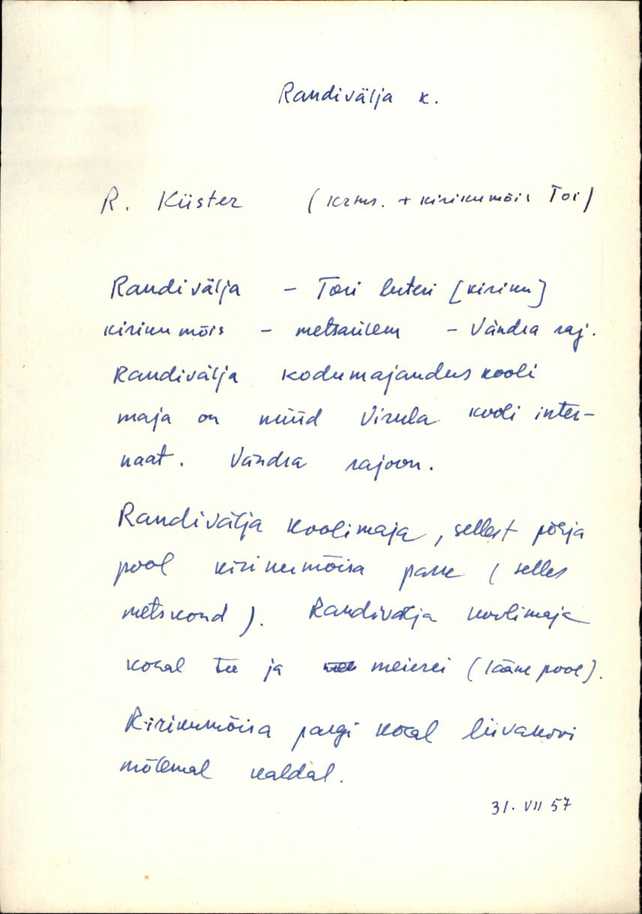 Randivälja k.
R. Küster (krms. + kirikumõis Tori)
Randivälja – Tori luteri [kiriku]
kirikumõis – metsaülem – Vändra raj.
Randivälja kodumajanduskooli
maja on nüüd Virula kooli inter-
naat. Vändra rajoon.
Randivälja koolimaja, sellest põhja
pool kirikumõisa park (selles
metskond). Randivälja koolimaja
kohal tee ja meierei (lääne pool).
Kirikumõisa pargi kohal liivakivi
mõlemal kaldal.
31. VII 57